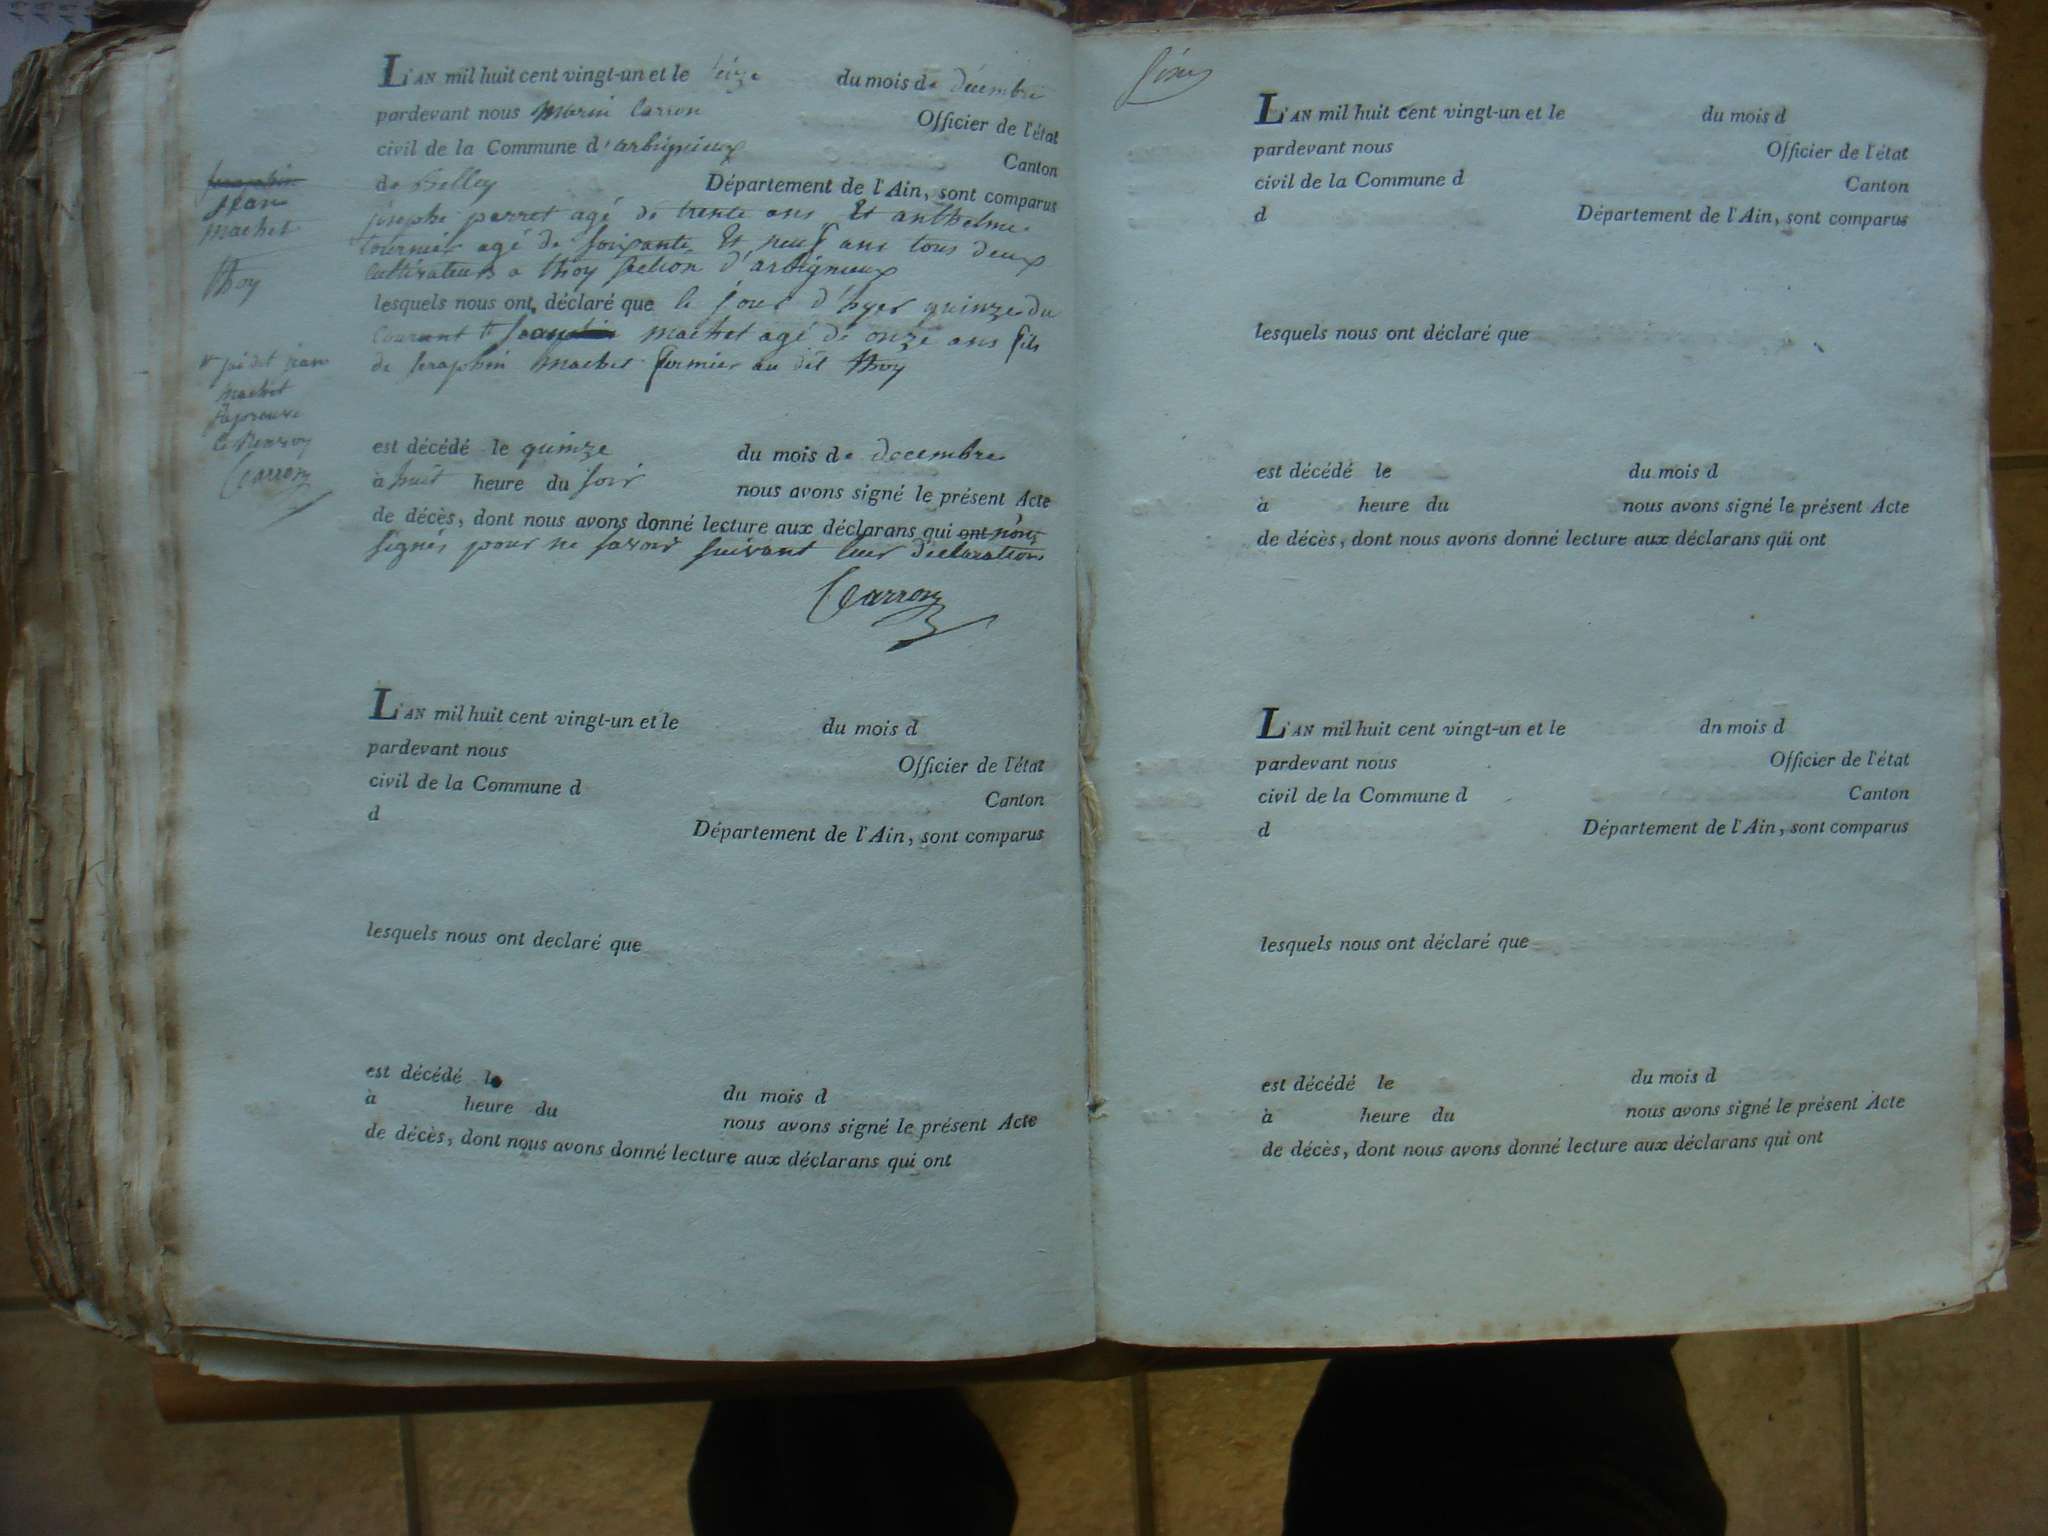 L'AN mil huit cent vingt-un et le seize du mois de décembre
pardevant nous Marin Carron Officier de l'état
civil de la Commune d'arbignieux Canton
de Belley Département de l'Ain, sont comparus
joseph perret agé de trente ans Et anthelme
fournier agé de soixante Et neuf ans tous deux
Cultivateurs a thoy section d'arbignieux
lesquels nous ont déclaré que le jour d'hyer quinze du
courant machet agé de onze ans fils
de seraphin machet fermier au dit thoy
est décédé le quinze du mois de decembre
à huit heure du soir nous avons signé le présent Acte
de décès, dont nous avons donné lecture aux déclarans qui ont non
signés pour ne savoir suivant leur déclaration
Carron
seraphin
jean
machet
thoy
jai dit jean
machet
j'approuve
le Renvoy
Carron
L'AN mil huit cent vingt-un et le du mois d
pardevant nous Officier de l'état
civil de la Commune d Canton
d Département de l'Ain, sont comparus
lesquels nous ont declaré que
est décédé le du mois d
à heure du nous avons signé le présent Acte
de décès, dont nous avons donné lecture aux déclarans qui ont
L'AN mil huit cent vingt-un et le du mois d
pardevant nous Officier de l'état
civil de la Commune d Canton
d Département de l'Ain, sont comparus
lesquels nous ont déclaré que
est décédé le du mois d
à heure du nous avons signé le présent Acte
de décès, dont nous avons donné lecture aux déclarans qui ont
L'AN mil huit cent vingt-un et le dn mois d
pardevant nous Officier de l'état
civil de la Commune d Canton
d Département de l'Ain, sont comparus
lesquels nous ont déclaré que
est décédé le du mois d
à heure du nous avons signé le présent Acte
de décès, dont nous avons donné lecture aux déclarans qui ont